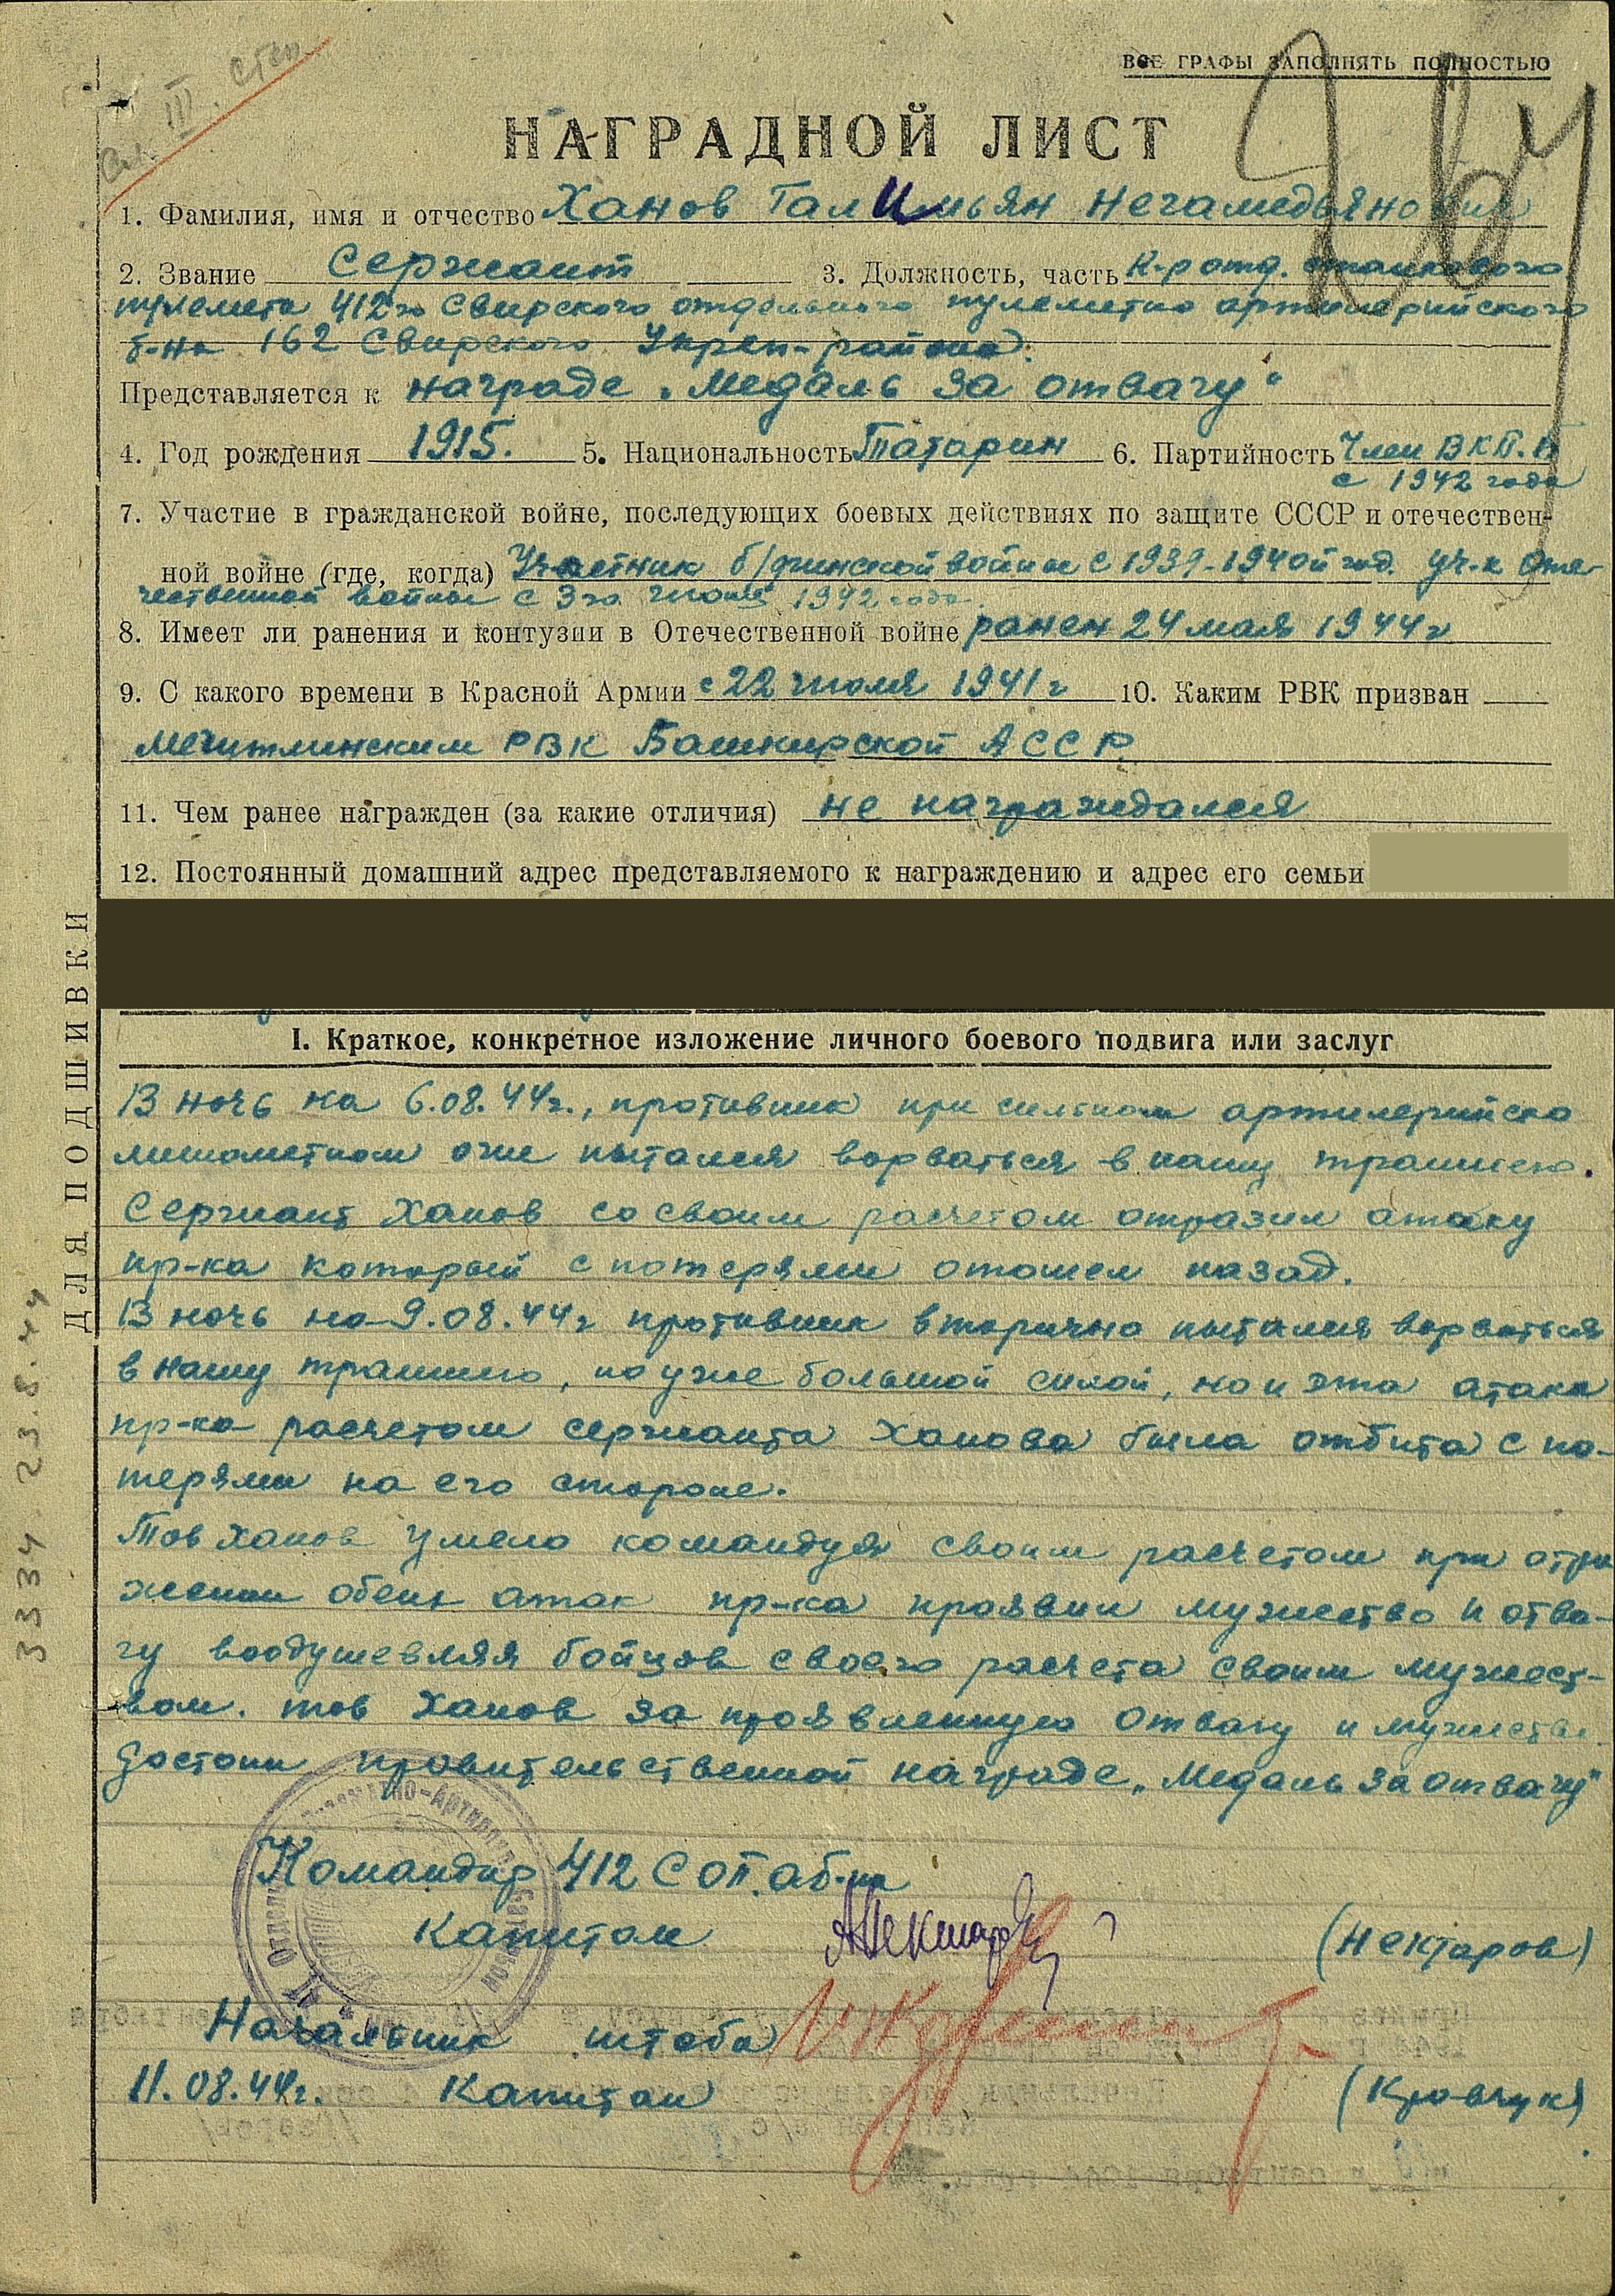 Сл. III степ
ВСЕ ГРАФЫ ЗАПОЛНЯТЬ ПОЛНОСТЬЮ
НАГРАДНОЙ ЛИСТ
1. Фамилия, имя и отчество Ханов Галимьян Негамедьянович
2. Звание Сержант 3. Должность, часть К-р отд. станкового
пулемета 412го Свирского отдельного пулеметно артилерийского
б-на 162 Свирского Укреп-района.
Представляется к награде „Медаль За отвагу"
4. Год рождения 1915. 5. Национальность Татарин 6. Партийность Член ВКП.б
с 1942 года
7. Участие в гражданской войне, последующих боевых действиях по защите СССР и отечествен-
ной войне (где, когда) Участник б/финской войны с 1939-1940й год. уч-к Оте-
чественной войны с 3го июня 1942 года.
8. Имеет ли ранения и контузии в Отечественной войне ранен 24 мая 1944г
9. С какого времени в Красной Армии с 22 июля 1941г 10. Каким РВК призван
Мечетлинским РВК Башкирской АССР.
11. Чем ранее награжден (за какие отличия) не награждался
12. Постоянный домашний адрес представляемого к награждению и адрес его семьи
I. Краткое, конкретное изложение личного боевого подвига или заслуг
В ночь на 6.08.44г., противник при сильном артилерийско
минометном огне пытался ворваться в нашу траншею.
Сержант Ханов со своим расчетом отразил атаку
пр-ка который с потерями отошел назад.
В ночь на 9.08.44г противник вторично пытался ворваться
в нашу траншею, но уже большой силой, но и эта атака
пр-ка расчетом сержанта Ханова была отбита с по-
терями на его стороне.
Тов Ханов умело командуя своим расчетом при отра
жении обеих атак пр-ка проявил мужество и отва-
гу воодушевляя бойцов своего расчета своим мужест-
вом. тов Ханов за проявленную отвагу и мужество
достоин правительственной награде „Медаль За отвагу"
Командир 412 СОП.аб-на
капитан (Нектаров)
Начальник штаба
11.08.44г. Капитан (Кравчук)
ДЛЯ ПОДШИВКИ
3334 23.8.44